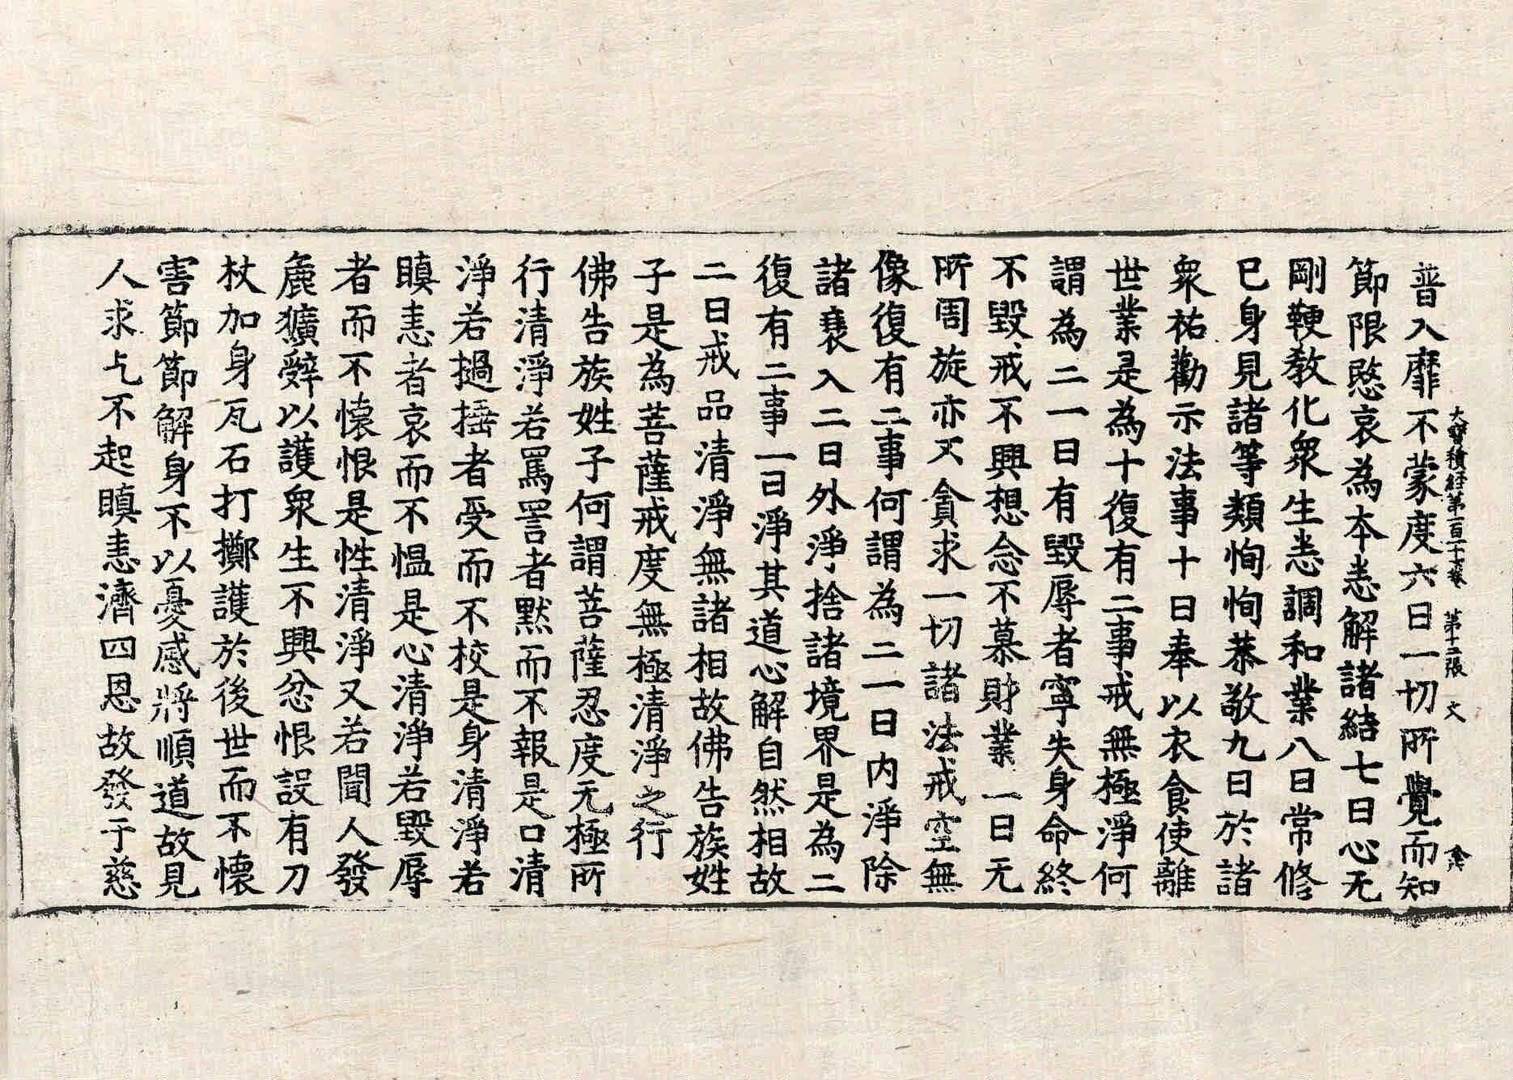 大寶積經第一百一十七卷　第十二張　文
普入靡不蒙度六曰一切所覺而知
節限愍哀為本恚解諸結七曰心无
剛鞕教化衆生恚調和業八曰常修
已身見諸等類恂恂恭敬九曰於諸
衆祐勸示法事十曰奉以衣食使離
世業是為十復有二事戒無極淨何
謂為二一曰有毀辱者寧失身命終
不毀戒不興想念不慕財業一曰无
所周旋亦不貪求一切諸法戒空無
像復有二事何謂為二一曰內淨除
諸衰入二曰外淨捨諸境界是為二
復有二事一曰淨其道心解自然相故
二曰戒品清淨無諸相故佛告族姓
子是為菩薩戒度無極清淨之行
佛告族姓子何謂菩薩忍度无極所
行清淨若罵詈者默而不報是口清
淨若撾捶者受而不校是身清淨若
瞋恚者哀而不愠是心清淨若毀辱
者而不懷恨是性清淨又若聞人發
麁獷辭以護衆生不興忿恨設有刀
杖加身瓦石打擲護於後世而不懷
害節節解身不以憂慼將順道故見
人求乞不起瞋恚濟四恩故發于慈